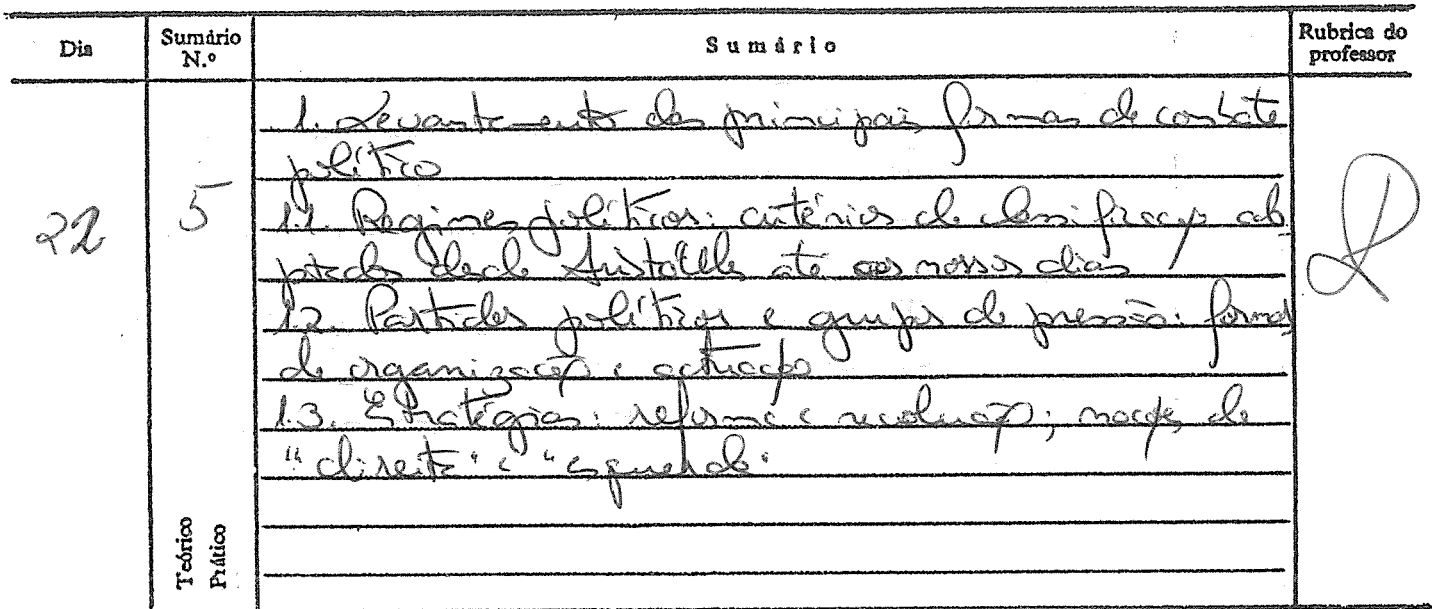 Dia
Sumário N.º
Sumário
Rubrica do professor
22
5
1. Levantamento das principais formas de combate
político
1.1. Regimes políticos: critérios de classificação adop
tados desde Aristóteles até aos nossos dias
1.2. Partidos políticos e grupos de pressão: formas
de organização e actuação
1.3. Estratégias: reforma e revolução; noções de
"direita" e "esquerda"
Teórico
Prático